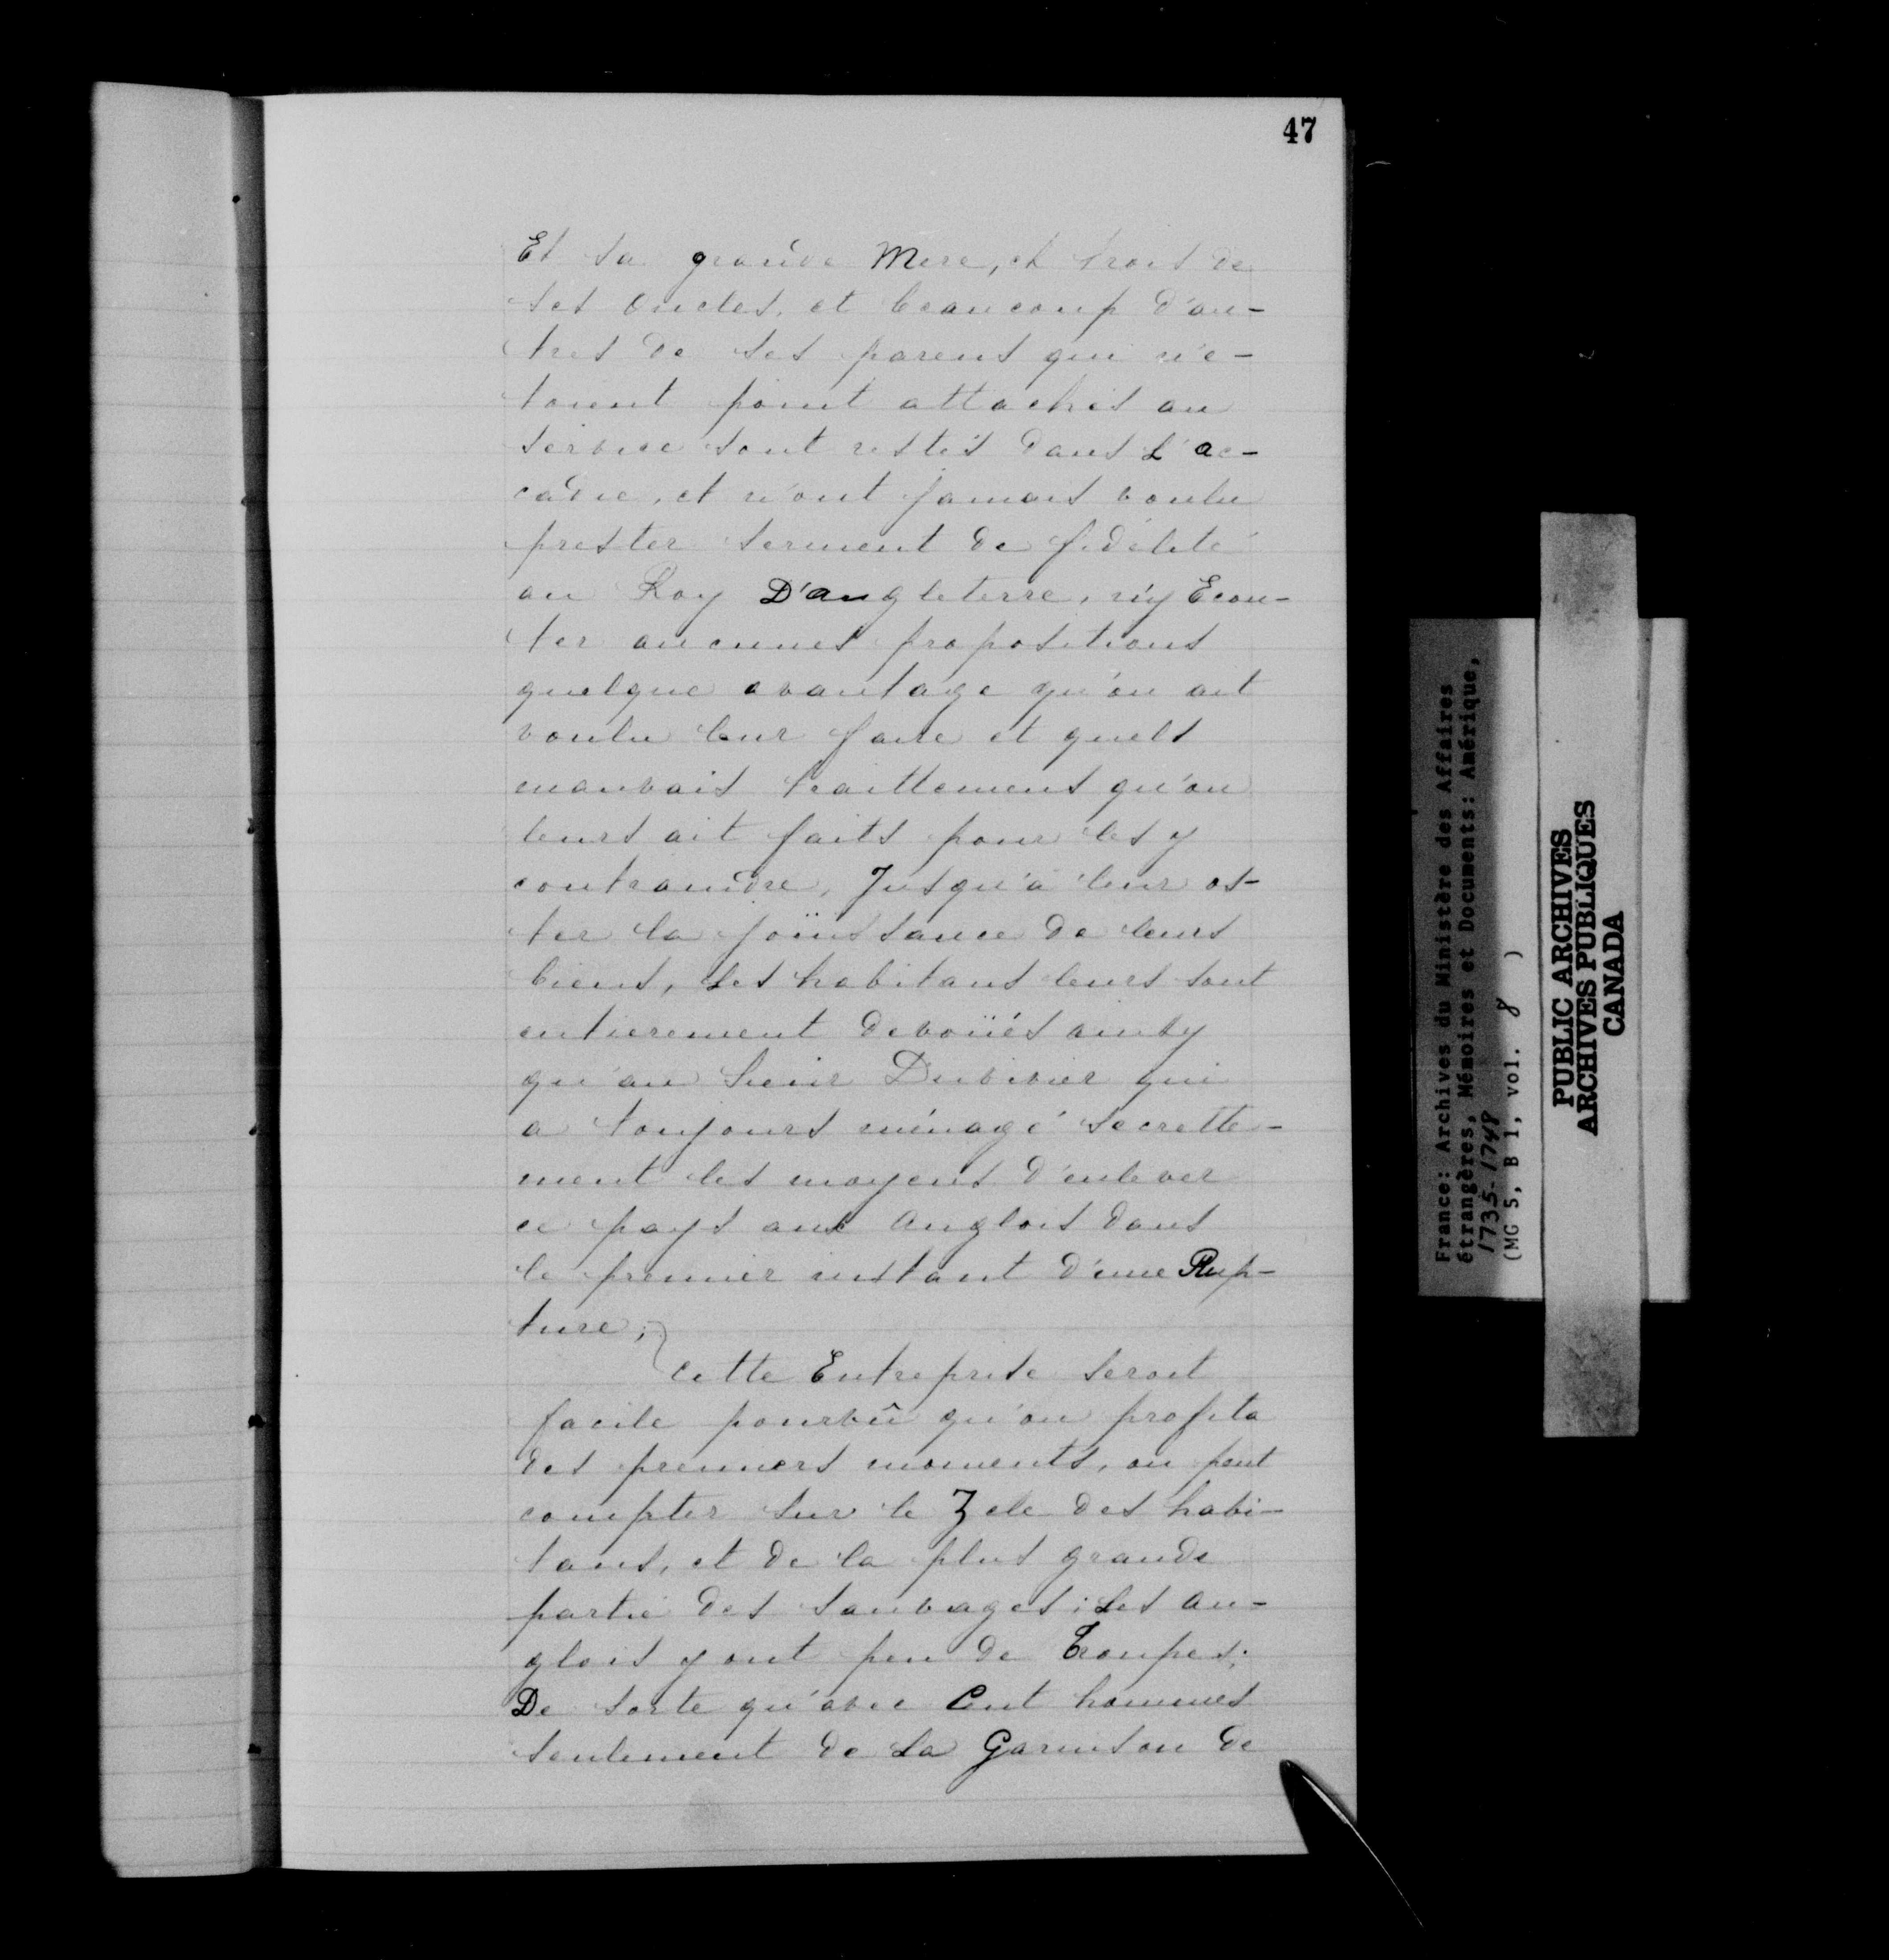 47
Et sa grande Mere, et trois de
ses oncles, et beaucoup d'au-
tres de ses parens qui n'e-
toient point attachés au
service sont restés dans L'ac-
cadie, et n'ont jamais voulu
prester serment de fidélité
au Roy D'angleterre, n'y Ecou-
ter aucunes propositions
quelque avantage qu'on ait
voulu leur faire et quels
mauvais traittemens qu'on
leurs ait faits pour les y
contraindre, Jusqu'à leur os-
ter la joüissance de leurs
biens, Les habitans leurs sont
entierement devoüés ainsy
qu'au Sieur Duvivier qui
a toujours ménagé secrette-
ment les moyens d'enlever
ce pays aux anglois dans
le premier instant d'une Rup-
ture,
Cette Entreprise seroit
facile pourvû qu'on profita
des premiers moments, on peut
compter sur le Zele des habi-
tans, et de la plus grande
partie des sauvages; Les an-
glois y ont peu de Troupes;
De sorte qu'avec Cent hommes
seulement de La Garnison de
France: Archives du Ministère des Affaires
étrangères, Mémoires et Documents: Amérique,
1735-1748
(MG 5, B 1, vol. 8 )
PUBLIC ARCHIVES
ARCHIVES PUBLIQUES
CANADA